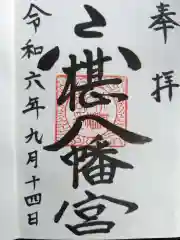 奉拝
八幡宮
令和六年九月十四日